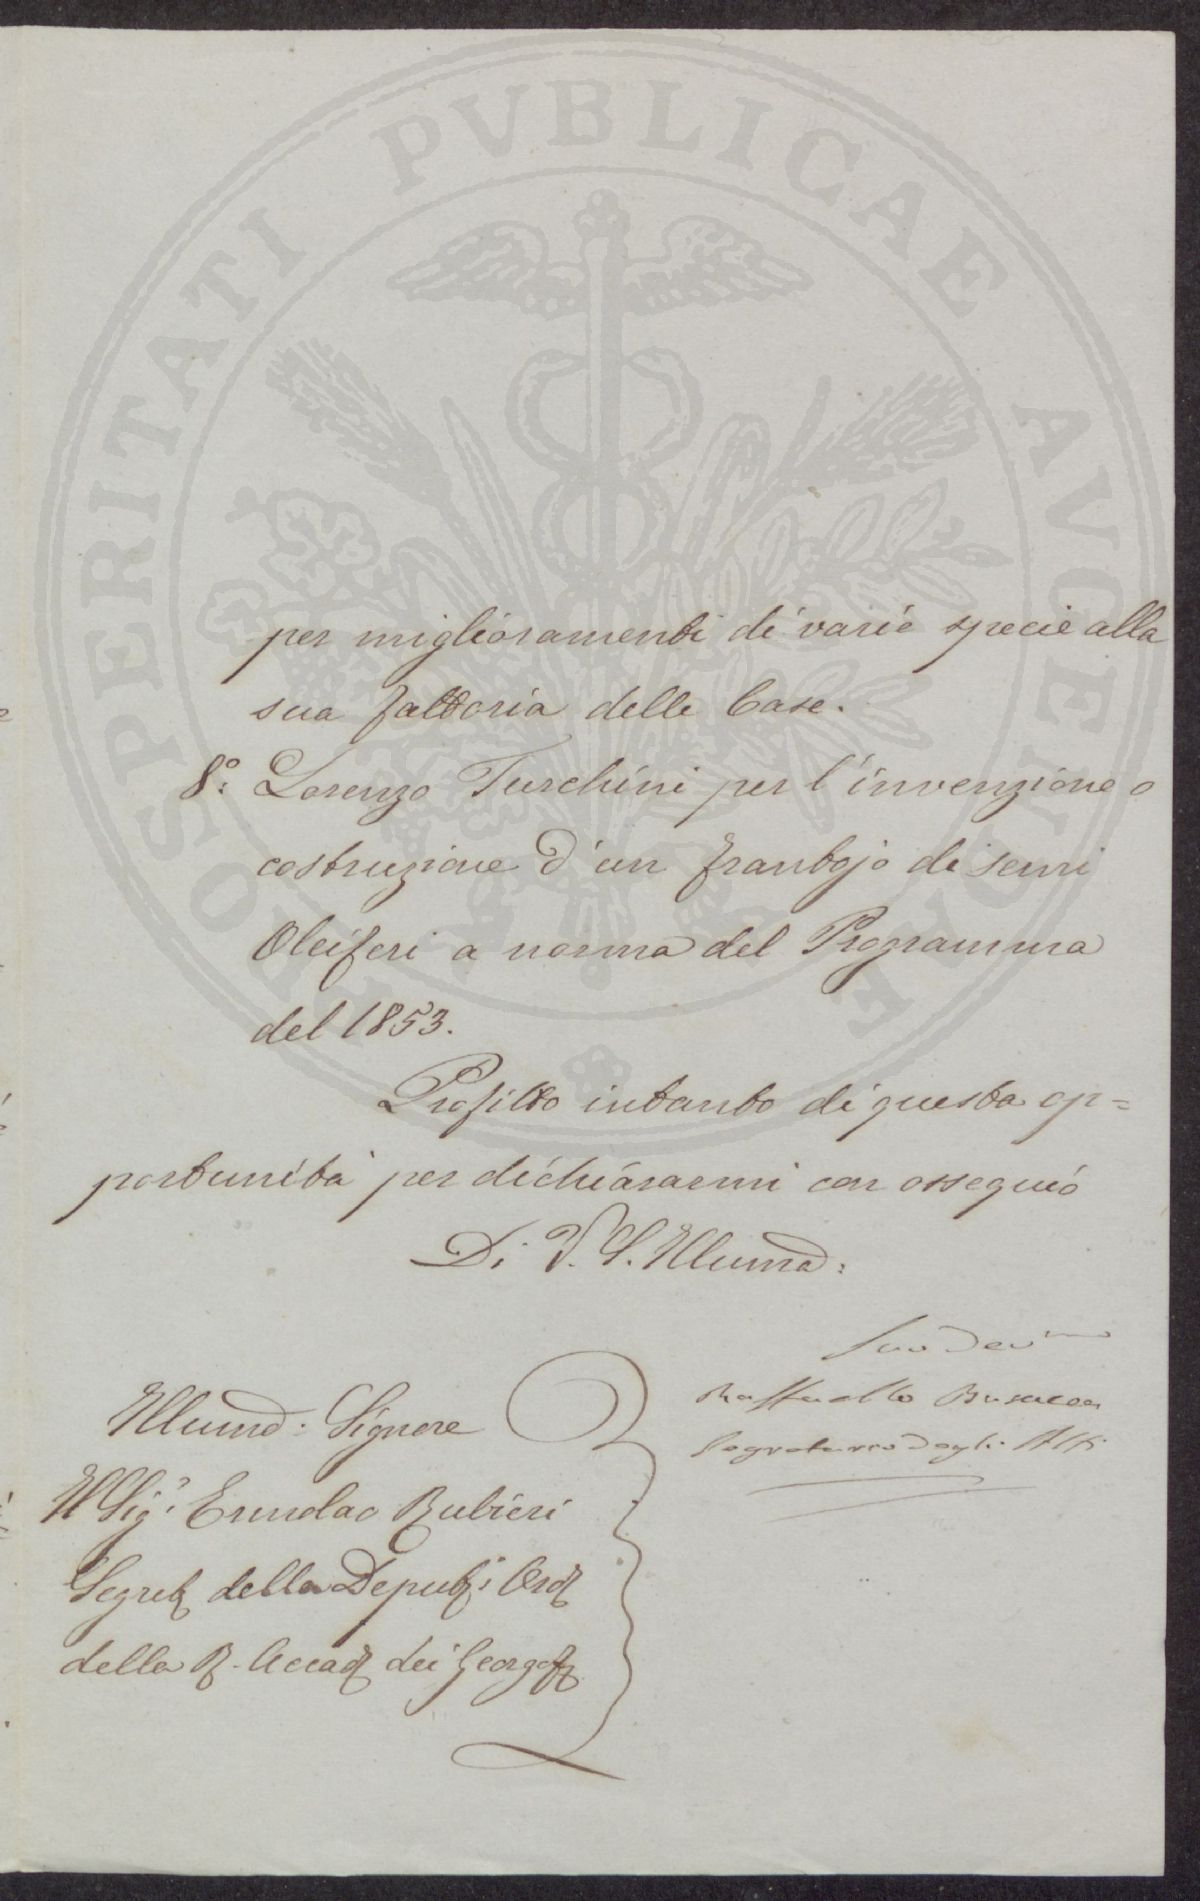 PROSPERITATI PVBLICAE AVGENDAE
per miglioramenti di varie specie alla
sua fattoria delle Case.
8°: Lorenzo Turchini per l'invenzione o
costruzione d'un frantojo di semi
Oleiferi a norma del Programma
del 1853.
Profitto intanto di questa op=
portunità per dichiararmi con ossequio
Di V. S. Illuma:
Suo Devmo
Raffaello Busacca
Segretario degli Atti
Illumo: Signore
Il Sig.r Ermolao Rubieri
Segret della Deput: Ord
della R. Accad dei Georgof